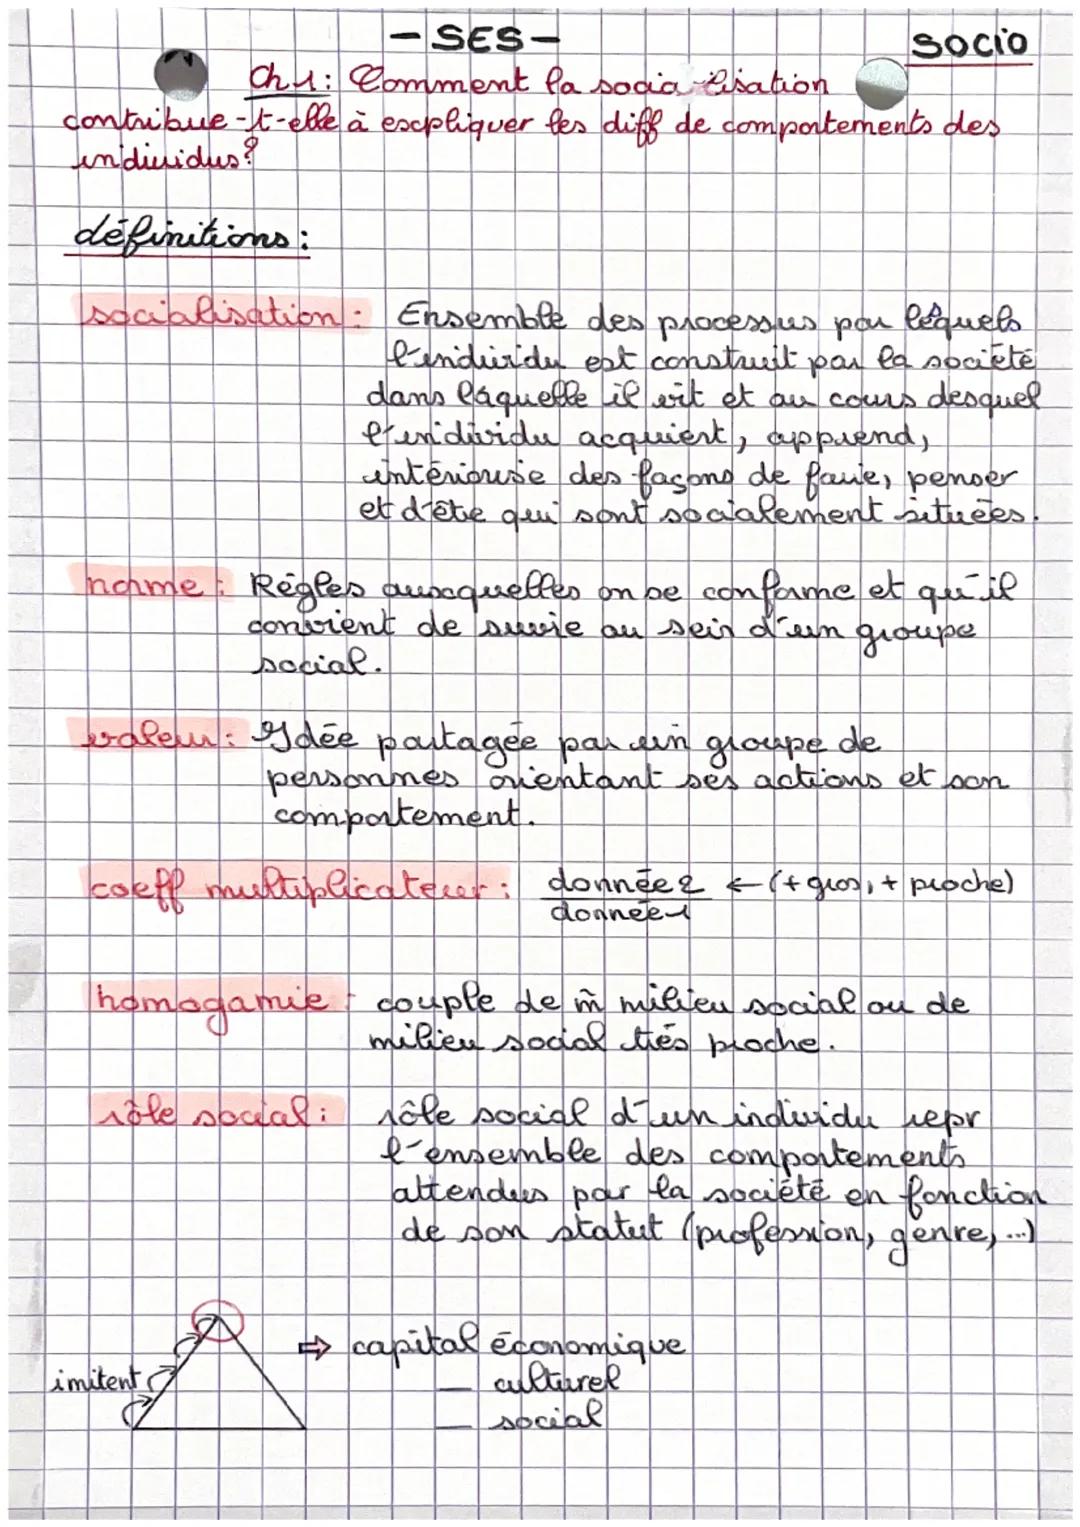 - SES -
SOCIO
Ch 1: Comment la socialisation
contribue-t-elle à expliquer les diff de comportements des
individus?
définitions:
socialisation: Ensemble des processus par lequels
l'individu est construit par la société
dans laquelle il vit et au cours desquel
l'individu acquiert, apprend,
intériorise des façons de faire, penser
et d'être qui sont socialement situées.
norme: Régles auxquelles on se conforme et qu'il
convient de suivre au sein d'un groupe
social.
valeur: Idée partagée par un groupe de
personnes orientant ses actions et son
comportement.
coeff multiplicateur: donnée 2 ← (+ gros, + proche)
donnée 1
homogamie: couple de m̂ milieu social ou de
milieu social très proche.
rôle social: rôle social d'un individu repr
l'ensemble des comportements
attendus par la société en fonction
de son statut (profession, genre, ...)
⇒ capital économique
imitent
— culturel
— social